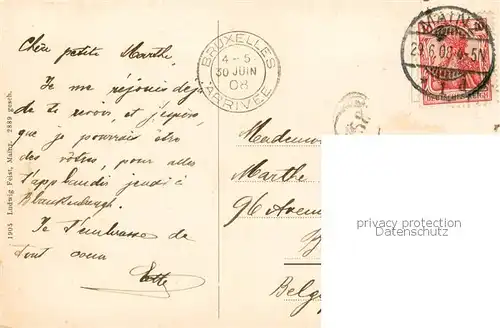 Chère petite Marthe,
Je me réjouis déj
de te revoir, et j'espère,
que je pourrais être
des vôtres, pour aller
t'applaudir jeudi à
Blankenberghe
Je t'embrasse de
tout coeur
1904 Ludwig Feist, Mainz. 2889 gesch.
BRUXELLES
4-5
30 JUIN
08
ARRIVÉE
MAINZ
29.6.08
Mademoi
Marthe
96 Avenue
B
Belg
privacy protection
Datenschutz